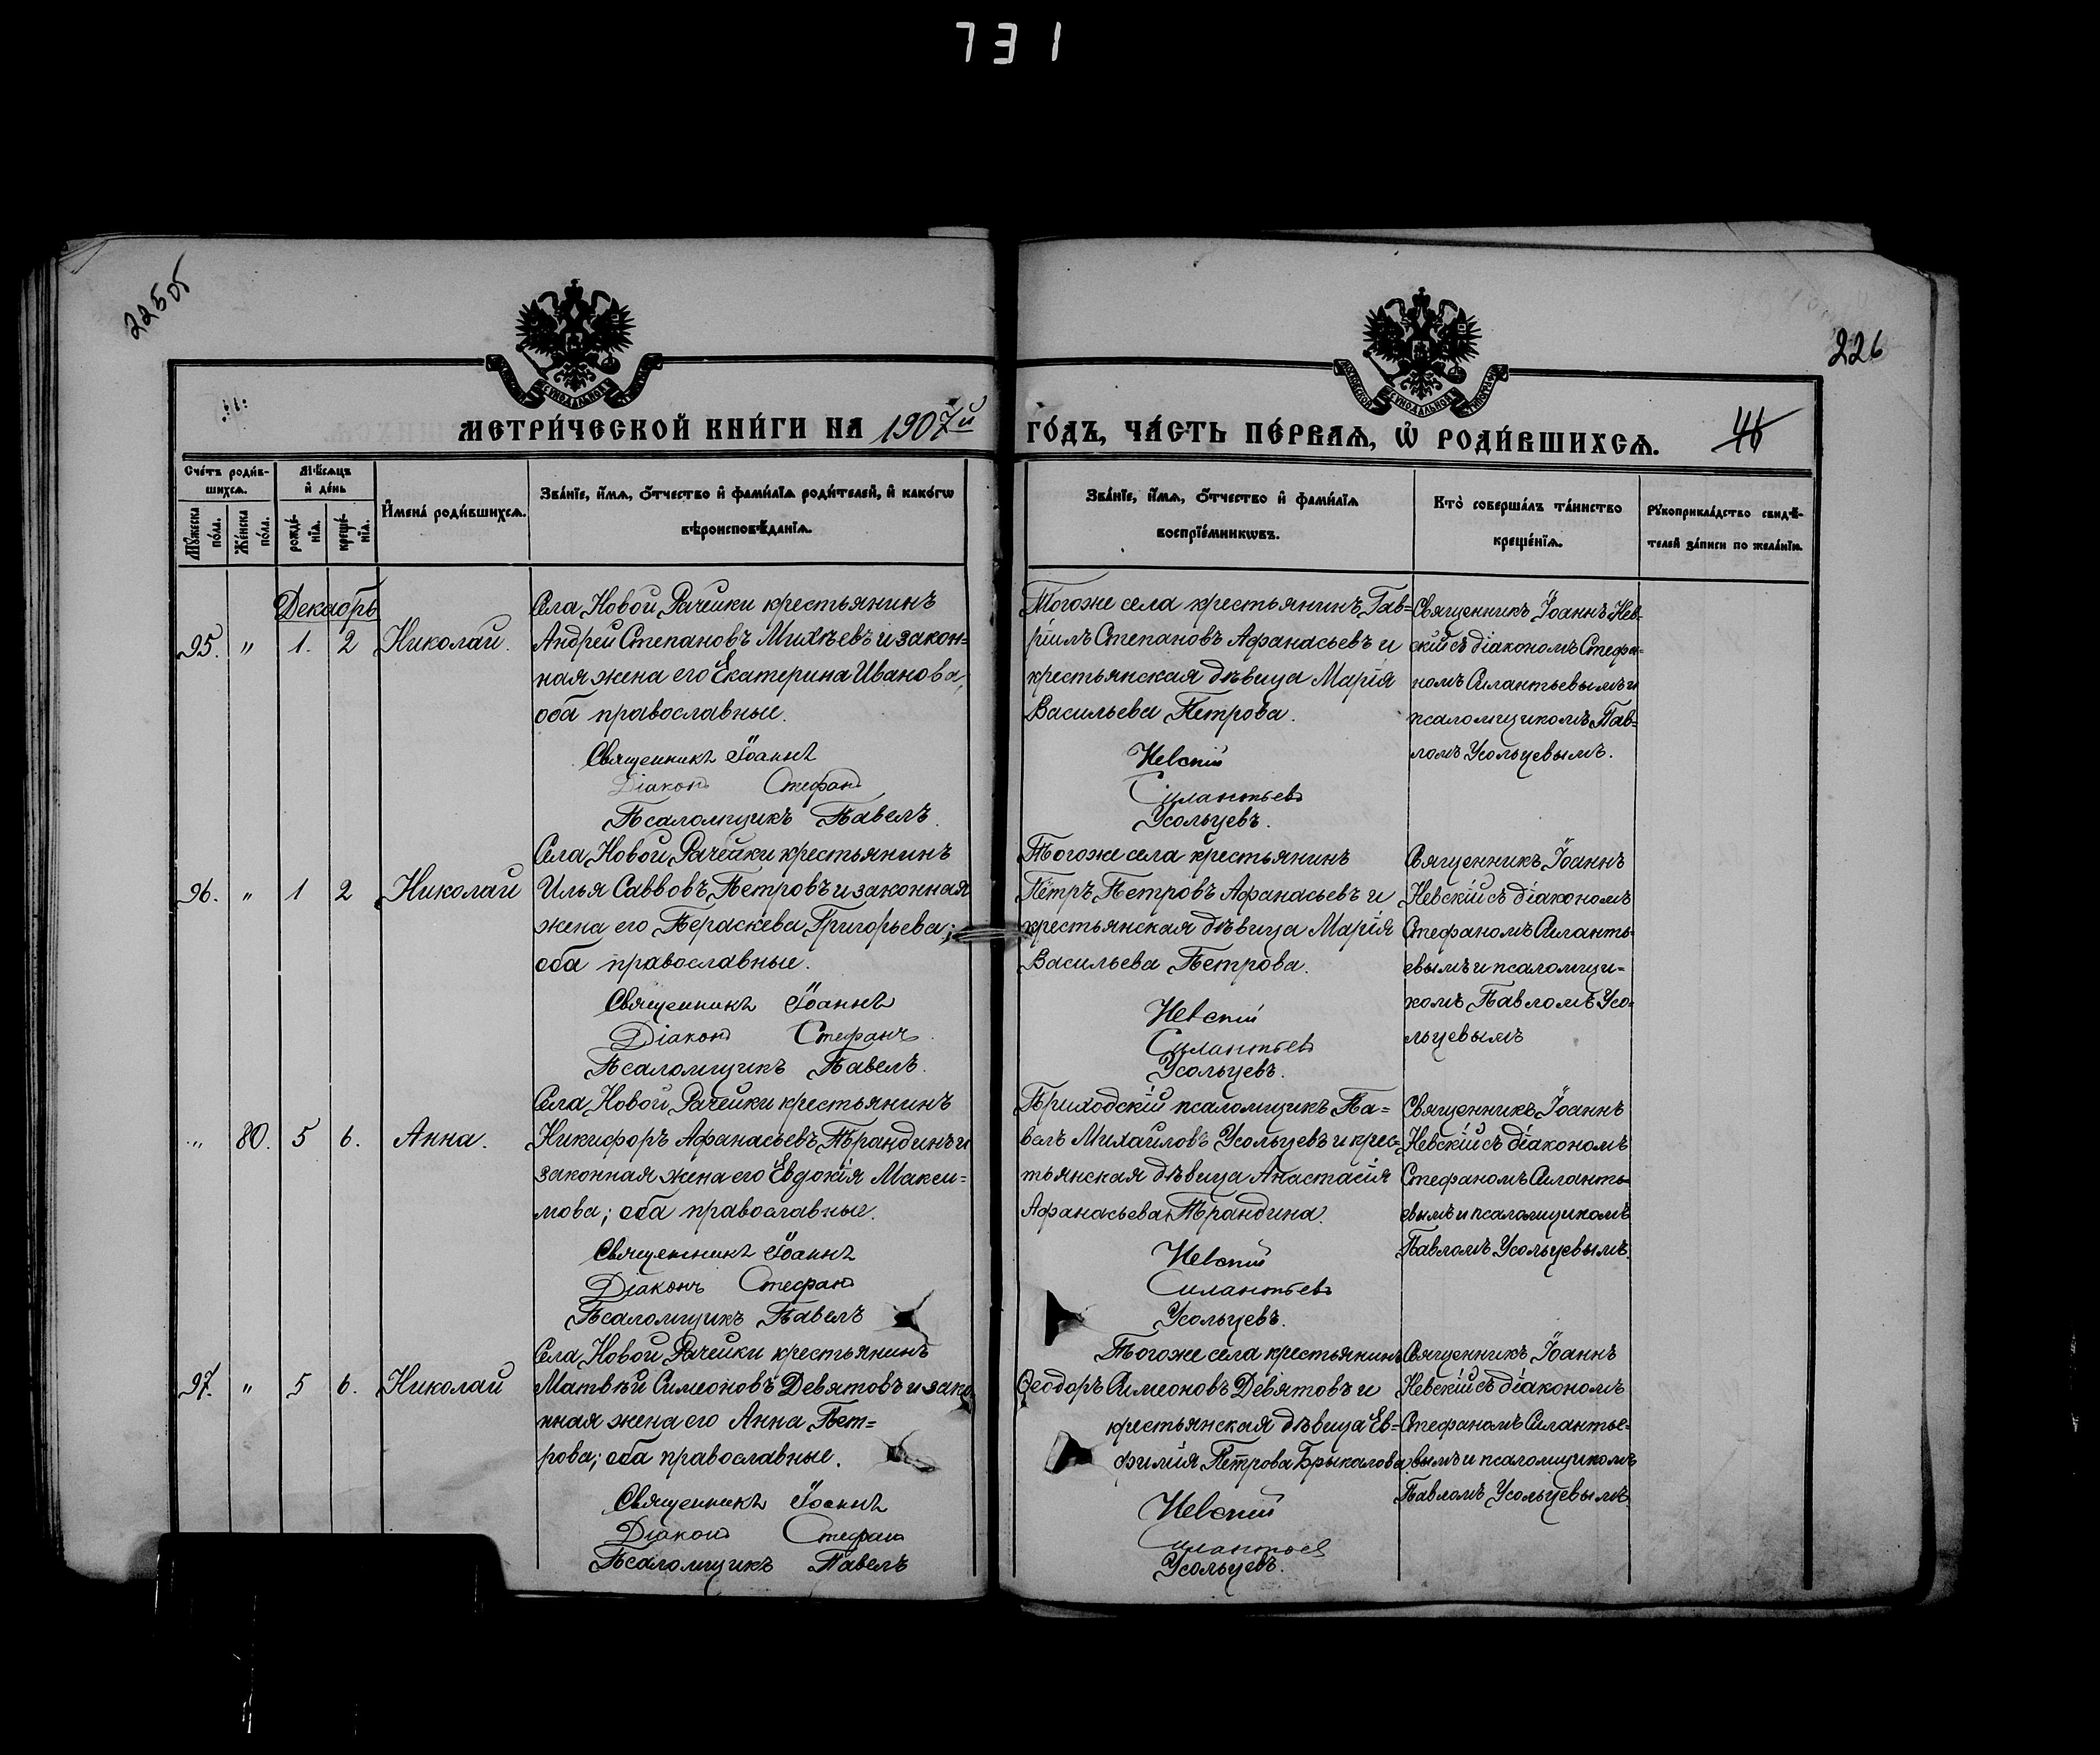 731
225об
226
МЕТРИ́ЧЕСКОЙ КНИ́ГИ НА 1907й
ГО́ДЪ, ЧА́СТЬ ПЕ́РВАѦ, Ѡ҆ РОДИ́ВШИХСѦ.
46
Сче́тъ роди́в-
шихсѧ.
Мѣ́сѧцъ
и҆ де́нь
Мꙋ́жеска
по́ла.
Же́нска
по́ла.
рожде́-
нїѧ.
креще́-
нїѧ.
И҆мена̀ роди́вшихсѧ.
Зва́нїе, и҆́мѧ, ѻ҆́тчество и҆ фами́лїѧ роди́телей, и҆ како́гѡ
вѣроисповѣ́данїѧ.
Зва́нїе, и҆́мѧ, ѻ҆́тчество и҆ фами́лїѧ
воспрїе́мникѡвъ.
Кто̀ соверша́лъ та́инство
креще́нїѧ.
Рꙋкоприкла́дство свидѣ́-
телей за́писи по жела́нїю.
Декабрь
95. " 1. 2 Николай.
Села Новой Рачейки крестьянинъ
Андрей Степановъ Михѣевъ и закон-
ная жена его Екатерина Иванова,
оба православные.
Священникъ Іоаннъ
Діаконъ Стефанъ
Псаломщикъ Павелъ.
Тогоже села крестьянинъ Гав-
ріилъ Степановъ Афанасьевъ и
крестьянская дѣвица Марія
Васильева Петрова.
Невскій
Силантьевъ
Усольцевъ.
Священникъ Іоаннъ Нев-
скій съ діакономъ Стефа-
номъ Силантьевымъ и
псаломщикомъ Пав-
ломъ Усольцевымъ.
96. " 1 2 Николай
Села Новой Рачейки крестьянинъ
Илья Саввовъ Петровъ и законная
жена его Пераскева Григорьева;
оба православные.
Священникъ Іоаннъ
Діаконъ Стефанъ
Псаломщикъ Павелъ.
Тогоже села крестьянинъ
Петръ Петровъ Афанасьевъ и
крестьянская дѣвица Марія
Васильева Петрова.
Невскій
Силантьевъ
Усольцевъ.
Священникъ Іоаннъ
Невскій съ діакономъ
Стефаномъ Силанть-
евымъ и псаломщи-
комъ Павломъ Усо-
льцевымъ
" 80. 5 6. Анна.
Села Новой Рачейки крестьянинъ
Никифоръ Афанасьевъ Трандинъ и
законная жена его Евдокія Макси-
мова; оба православные.
Священникъ Іоаннъ
Діаконъ Стефанъ
Псаломщикъ Павелъ
Приходскій псаломщикъ Па-
велъ Михаиловъ Усольцевъ и крес-
тьянская дѣвица Анастасія
Афанасьева Трандина.
Невскій
Силантьевъ
Усольцевъ.
Священникъ Іоаннъ
Невскій съ діакономъ
Стефаномъ Силанть-
евымъ и псаломщикомъ
Павломъ Усольцевымъ.
97. " 5 6. Николай
Села Новой Рачейки крестьянинъ
Матвѣй Симеоновъ Девятовъ и зако-
нная жена его Анна Пет-
рова; оба православные.
Священникъ Іоаннъ
Діаконъ Стефанъ
Псаломщикъ Павелъ
Тогоже села крестьянинъ
Ѳеодоръ Симеоновъ Девятовъ и
крестьянская дѣвица Ев-
фимія Петрова Брыкалова
Невскій
Силантьев
Усольцевъ.
Священникъ Іоаннъ
Невскій съ діакономъ
Стефаномъ Силантье-
вымъ и псаломщикомъ
Павломъ Усольцевымъ.